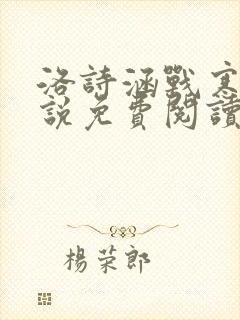 洛詩涵戰寒
說免費閱讀
楊荣郎